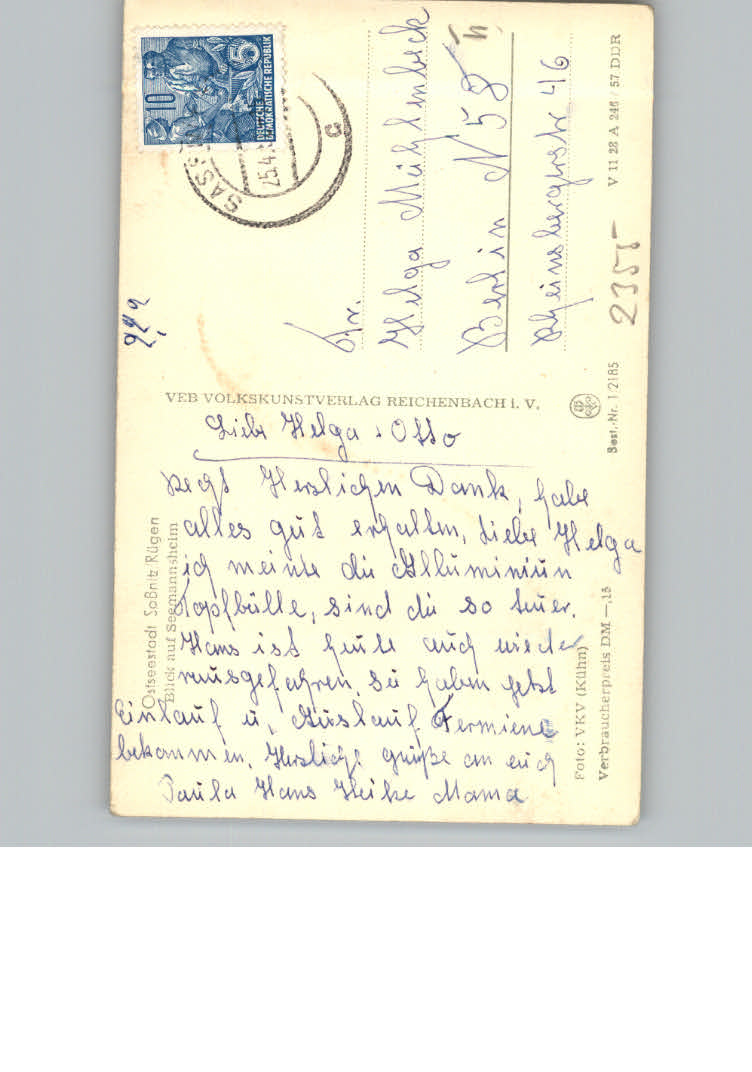 10
5
DEUTSCHE
DEMOKRATISCHE REPUBLIK
SAS
25.4.
c
Fr.
Helga Mühlenbeck
Berlin N 58
Rheinsbergerstr 46
V 11 28 A 246 / 57 DDR
2355-
Best.-Nr. 1/2185
VEB VOLKSKUNSTVERLAG REICHENBACH i. V.
Ostseestadt Saßnitz Rügen
Blick auf Seemannsheim
Foto: VKV (Kühn)
Verbraucherpreis DM —,15
Liebe Helga u Otto
Recht Herzlichen Dank, habe
alles gut erhalten, Liebe Helga
ich meinte die Illuminiun
Kopfbülle, sind die so teuer.
Hans ist heute auch wieder
rausgefahren, sie haben jetzt
Einlauf u. Auslauf Termiene
bekommen. Herzliche grüße an euch
Paula Hans Heike Mama